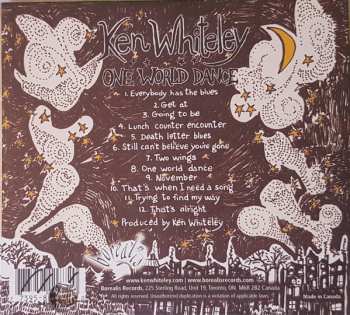 Ken Whiteley
ONE WORLD DANCE
1. Everybody has the blues
2. Get at
3. Going to be
4. Lunch counter encounter
5. Death letter blues
6. Still can't believe you're gone
7. Two wings
8. One world dance
9. November
10. That's when I need a song
11. Trying to find my way
12. That's alright
Produced by Ken Whiteley
www.kenwhiteley.com | www.borealisrecords.com
Borealis Records, 225 Sterling Road, Unit 19, Toronto, ON M6R 2B2 Canada
All rights reserved. Unauthorized duplication is a violation of applicable laws.
Made in Canada